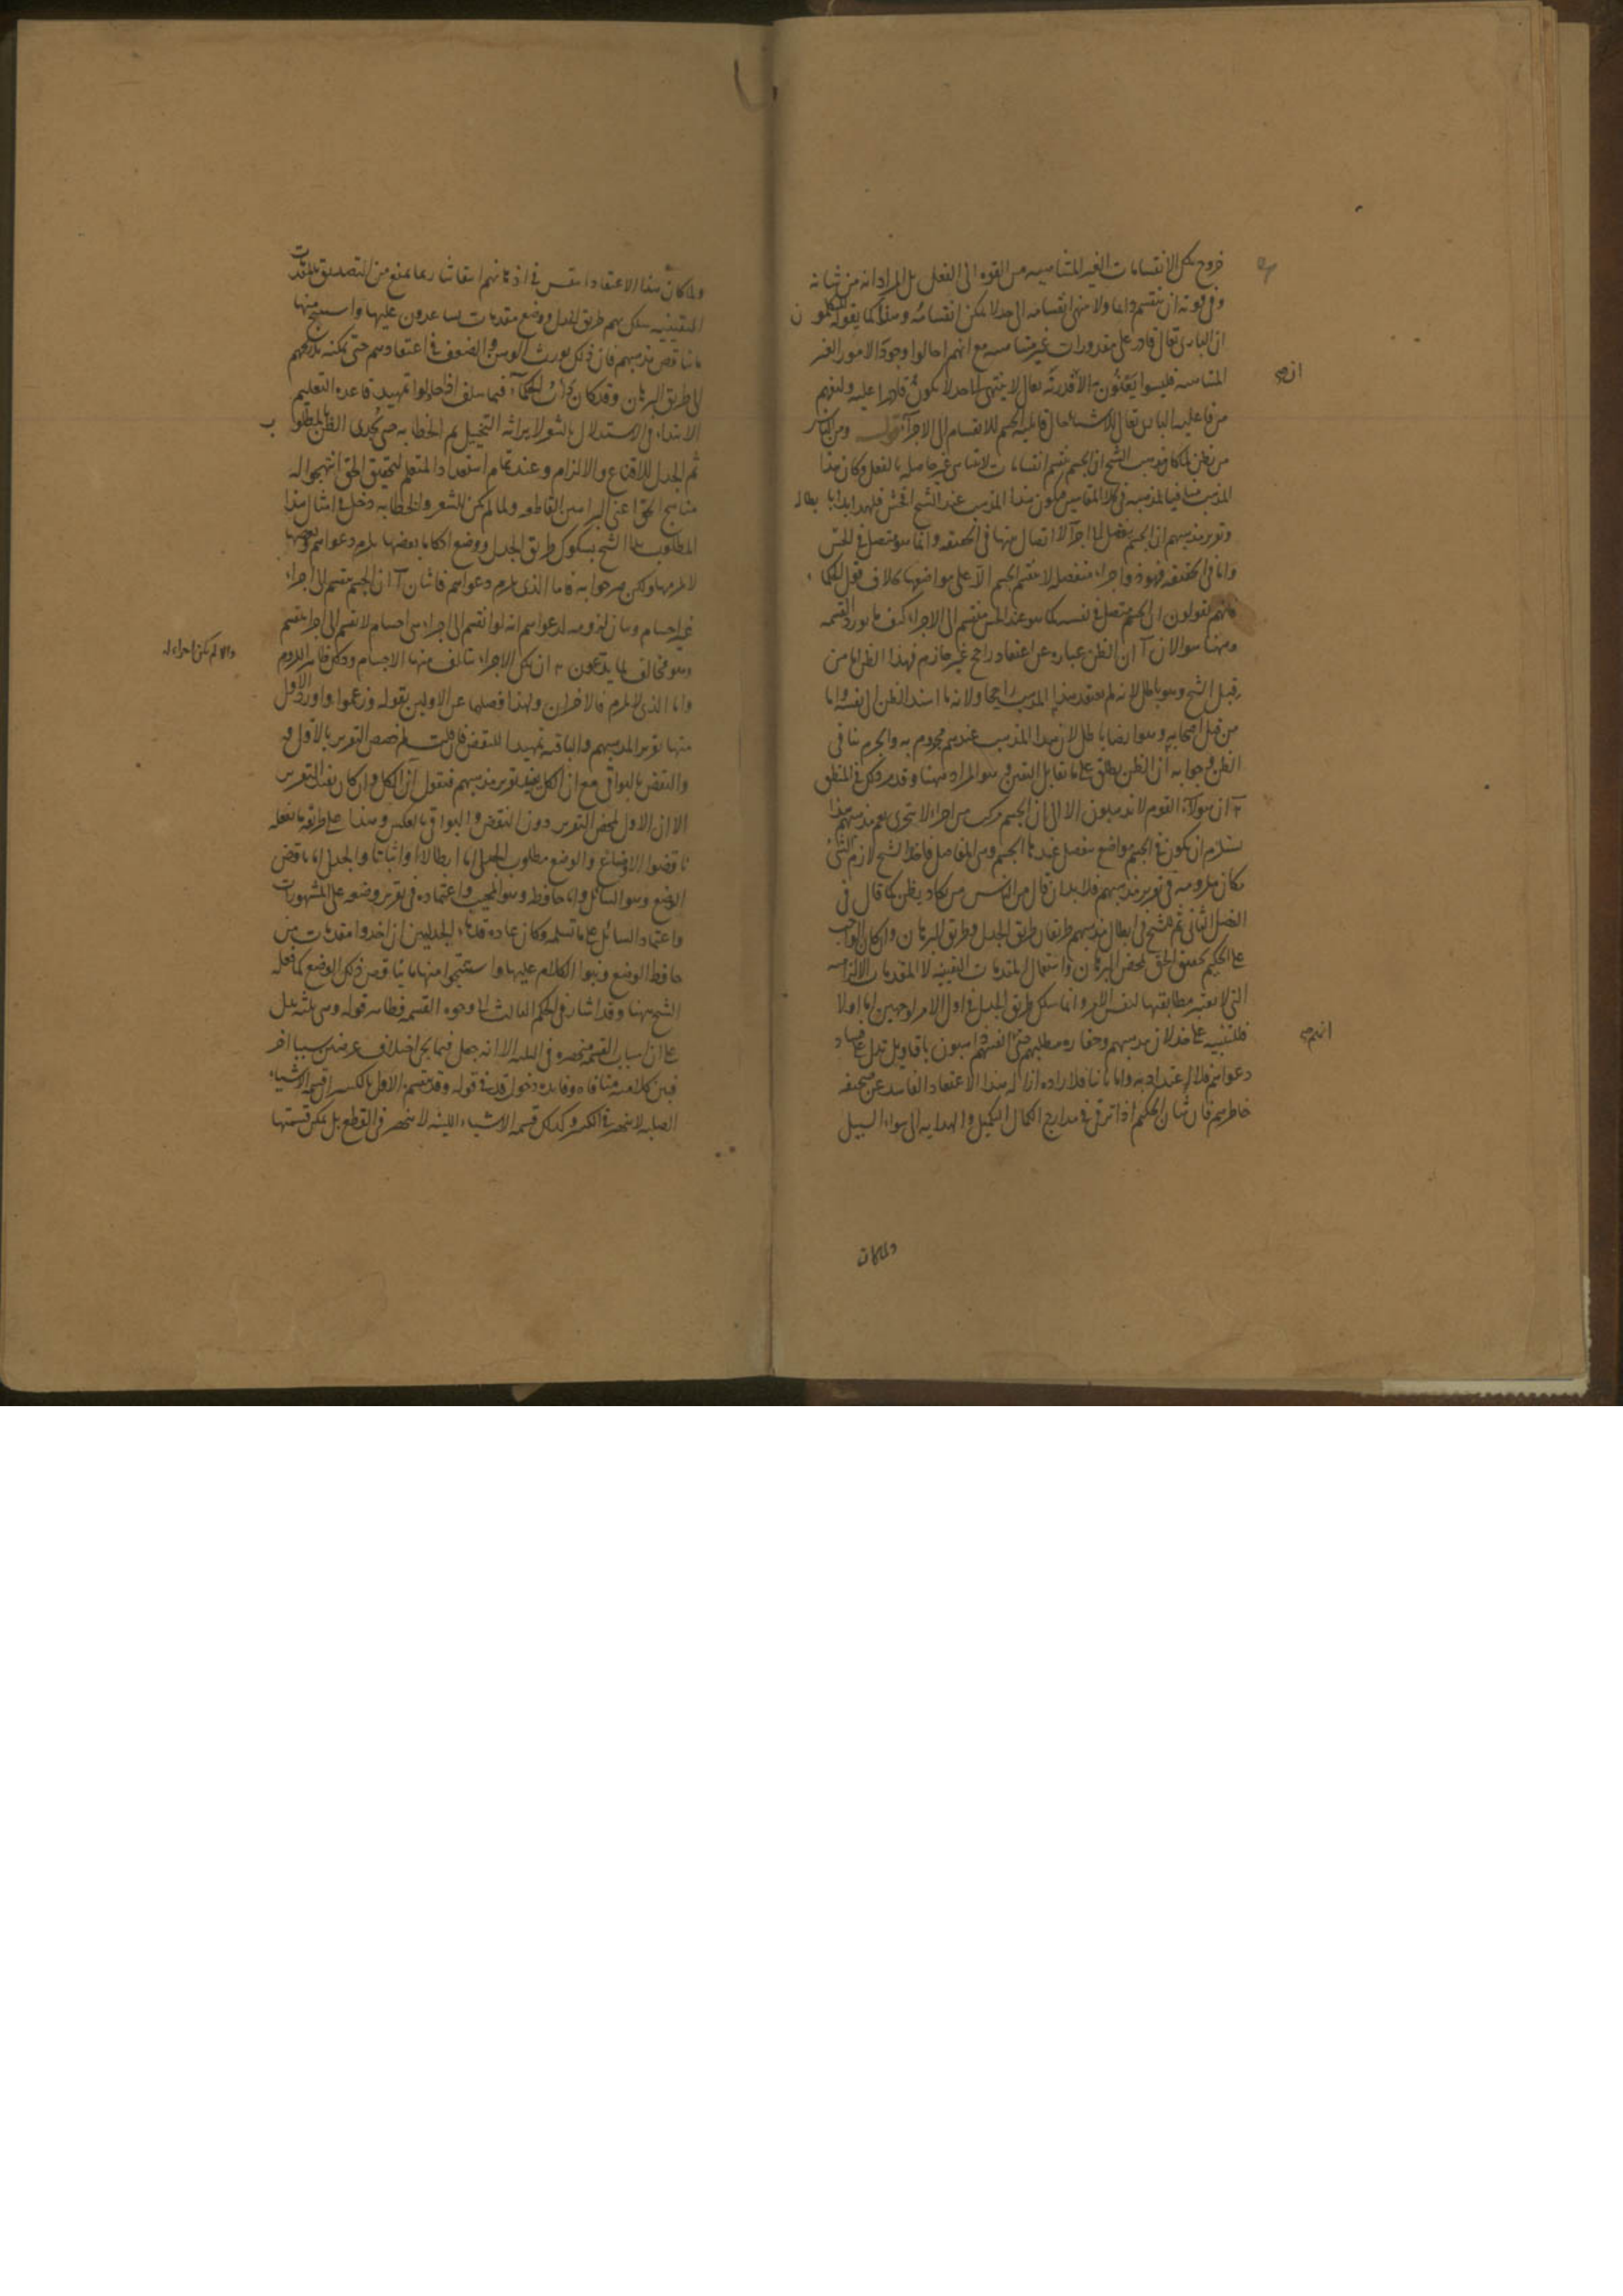 خروج تلك الانقسامات الغير المتناهية من القوة الى الفعل بل المراد انه من شانه
وفى قوته ان ينقسم دائما ولا ينتهى انقسامه الى حد لا يمكن انقسامه وهذا كما يقوله المتكلمون
ان البارى تعالى قادر على مقدورات غير متناهية مع انهم احالوا وجود الامور الغير
المتناهية فليسوا يعنون به الا ان قدرته تعالى لا ينتهى الى حد لا يكون قادرا عليه وليفهم
من فاعلية البارى تعالى للاشياء حال قابلية الجسم للانقسام الى الاجزاء قوله ومن الناس
من يظن لما كان مذهب الشيخ ان الجسم ينقسم انقسامات لا يتناهى غير حاصلة بالفعل وكان هذا
المذهب منافيا لمذهبه فى كلا المقامين فيكون هذا المذهب عند الشيخ افحش فلهذا بدا بابطاله
وتقرير مذهبهم ان الجسم ينفصل الى اجزاء لا اتصال بينها فى الحقيقة وانما هو متصل فى الحس
واما فى الحقيقة فهو ذو اجزاء منفصلة لا ينقسم الجسم الا على مواضعها بخلاف قول الحكماء
فانهم يقولون ان الجسم متصل فى نفسه كما هو عند الحس منقسم الى الاجزاء كيف ما يورد القسمة
وههنا سوالان آ ان الظن عبارة عن اعتقاد راجح غير جازم فهذا الظن اما من
قبل الشيخ وهو باطل لانه لم يعتقد هذا المذهب راجحا ولانه ما اسند الظن الى نفسه واما
من قبل اصحابه وهو ايضا باطل لان هذا المذهب عندهم مجزوم به والجزم ينافى
الظن وجوابه ان الظن يطلق على ما يقابل اليقين وهو المراد ههنا وقد مر ذلك فى المنطق
ب ان هؤلاء القوم لا يذهبون الا الى ان الجسم مركب من اجزاء لا يتجزى نعم مذهبهم هذا
يستلزم ان يكون فى الجسم مواضع ينفصل عندها الجسم وهى المفاصل فاخذ الشيخ لازم الشئ
مكان ملزومه فى تقرير مذهبهم فلا بد ان قال من الناس من يكاد يظن كما قال فى
الفصل الثانى ثم للشيخ فى ابطال مذهبهم طريقان طريق الجدل وطريق البرهان وان كان الواجب
على الحكيم تحقيق الحق بمحض البرهان واستعمال المقدمات اليقينية لا المقدمات الالزامية
التى لا يعتبر مطابقتها لنفس الامر وانما سلك طريق الجدل فى اول الامر لوجهين اما اولا
فللتنبيه على خذلان مذهبهم وحقارة مطلبهم حتى انفسهم ذاهبون باقاويل تدل على فساد
دعواهم فلا اعتداد به واما ثانيا فلارادة ازالة هذا الاعتقاد الفاسد عن صحيفة
خاطرهم فان شان الحكيم اذا ترقى فى مدارج الكمال التكميل والهداية الى سواء السبيل
ولما كان
ولما كان هذا الاعتقاد انتقش فى اذهانهم انتقاشا ربما يمنع من التصديق بالمقدمات
اليقينية سلك بهم طريق الجدل ووضع مقدمات يساعدون عليها واستنتج منها
ما يناقض مذهبهم فان ذلك يورث الوهن والضعف فى اعتقادهم حتى يمكنه تدريجهم
الى طريق البرهان وقد كان داب الحكماء فيما سلف اذا حاولوا تمهيد قاعدة التعليم
الابتداء فى الاستدلال بالشعر لايراثه التخييل ثم الخطابة حتى يجدى الظن بالمطلوب
ثم الجدل للاقناع والالزام وعند تمام استعداد المتعلم لتحقيق الحق انتهجوا له
مناهج الحق اعنى البراهين القاطعة ولما لم يكن للشعر والخطابة دخل فى امثال هذا
المطلوب بدا الشيخ بسلوك طريق الجدل ووضع احكاما بعضها يلزم دعواهم وبعضها
لا يلزمها ولكن صرحوا به فاما الذى يلزم دعواهم فاثنان آ ان الجسم ينقسم الى اجزاء
غير اجسام وبيان لزومه لدعواهم انه لو انقسم الى اجزاء هى اجسام لانقسم الى اجزاء ينقسم
وهو مخالف لما يدعون ب ان تلك الاجزاء يتالف منها الاجسام وذلك ظاهر اللزوم
والا لم يكن اجزاء له
واما الذى لا يلزم فالاخران ولهذا فصلهما عن الاولين بقوله وزعموا واورد الاول
منها تقريرا لمذهبهم والباقية تمهيدا للنقض فان قلت لم خصص التقرير بالاول
والنقض بالبواقى مع ان الكل يفيد تقرير مذهبهم فنقول ان الكل وان كان يفيد التقرير
الا ان الاول لمحض التقرير دون النقض والبواقى بالعكس وهذا على طريقة ما يفعله
ناقضوا الاوضاع والوضع مطلوب الجدلى اما ابطالا او اثباتا والجدلى اما ناقض
الوضع وهو السائل واما حافظ وهو المجيب واعتماده فى تقرير وضعه على المشهورات
واعتماد السائل على ما تسلمه وكان عادة قدماء الجدليين ان اخذوا مقدمات من
حافظ الوضع وبنوا الكلام عليها واستنتجوا منها ما يناقض ذلك الوضع كما فعله
الشيخ ههنا وقد اشار فى الحكم الثالث الى وجوه القسمة فظاهر قوله وهى ثلثة يدل
على ان اسباب القسمة منحصرة فى الثلثة الا انه جعل فيما بعد اختلاف عرضين سببا اخر
فبين كلاميه منافاة وفائدة دخول قد فى قوله وقد تقسم الاول بالكسر ان قسمة الاشياء
الصلبة لا ينحصر فى الكسر وكذلك قسمة الاشياء اللينة لا ينحصر فى القطع بل يمكن قسمتها